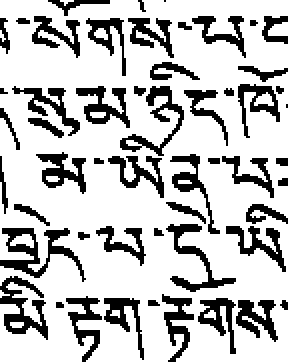 སོགས་པ་
སྒྱུ་མ་ཉིད་
མ་ཡིན་པ་
བྱེད་པ་དེ་ཡི
མི་རྟག་རྟོགས